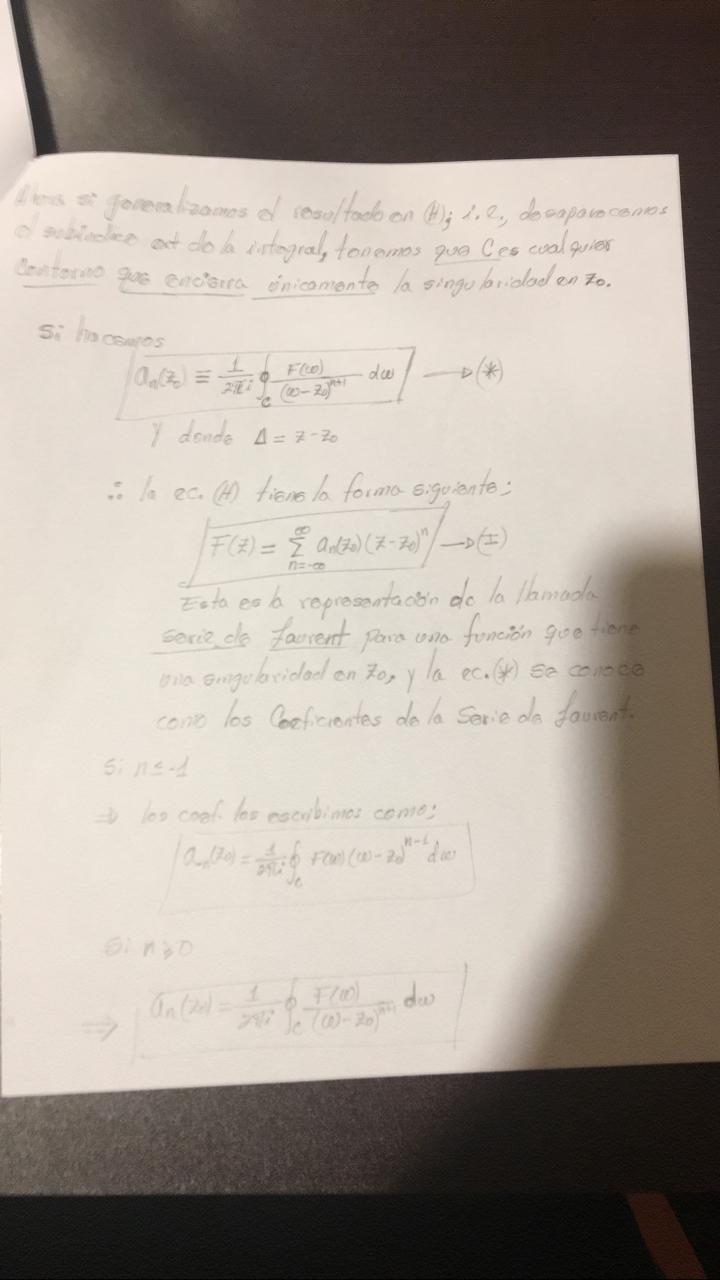 Ahora si generalizamos el resultado en (H); i.e., desaparecemos
el subíndice ext de la integral, tenemos que C es cualquier
contorno que encierra únicamente la singularidad en z₀.
Si hacemos
aₙ(z₀) ≡ 1/2πi ∮_C F(ω)/(ω-z₀)ⁿ⁺¹ dω → (*)
y donde Δ = z - z₀
∴ la ec. (H) tiene la forma siguiente:
F(z) = ∑_{n=-∞}^{∞} aₙ(z₀)(z-z₀)ⁿ → (I)
Esta es la representación de la llamada
serie de Laurent para una función que tiene
una singularidad en z₀, y la ec. (*) se conoce
como los Coeficientes de la Serie de Laurent.
Si n ≤ -1
⇒ los coef. los escribimos como:
a₋ₙ(z₀) = 1/2πi ∮_C F(ω)(ω-z₀)ⁿ⁻¹ dω
Si n ≥ 0
⇒ aₙ(z₀) = 1/2πi ∮_C F(ω)/(ω-z₀)ⁿ⁺¹ dω